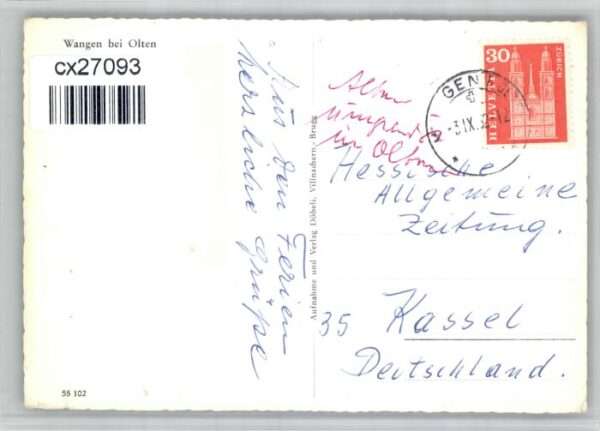 Wangen bei Olten
cx27093
Aus den Ferien
herzliche Grüße
Aufnahme und Verlag Döbeli, Villnachern-Brugg
55 102
30
HELVETIA
ZÜRICH
-3.IX.
in
Hessische
Allgemeine
Zeitung.
35 Kassel
Deutschland.